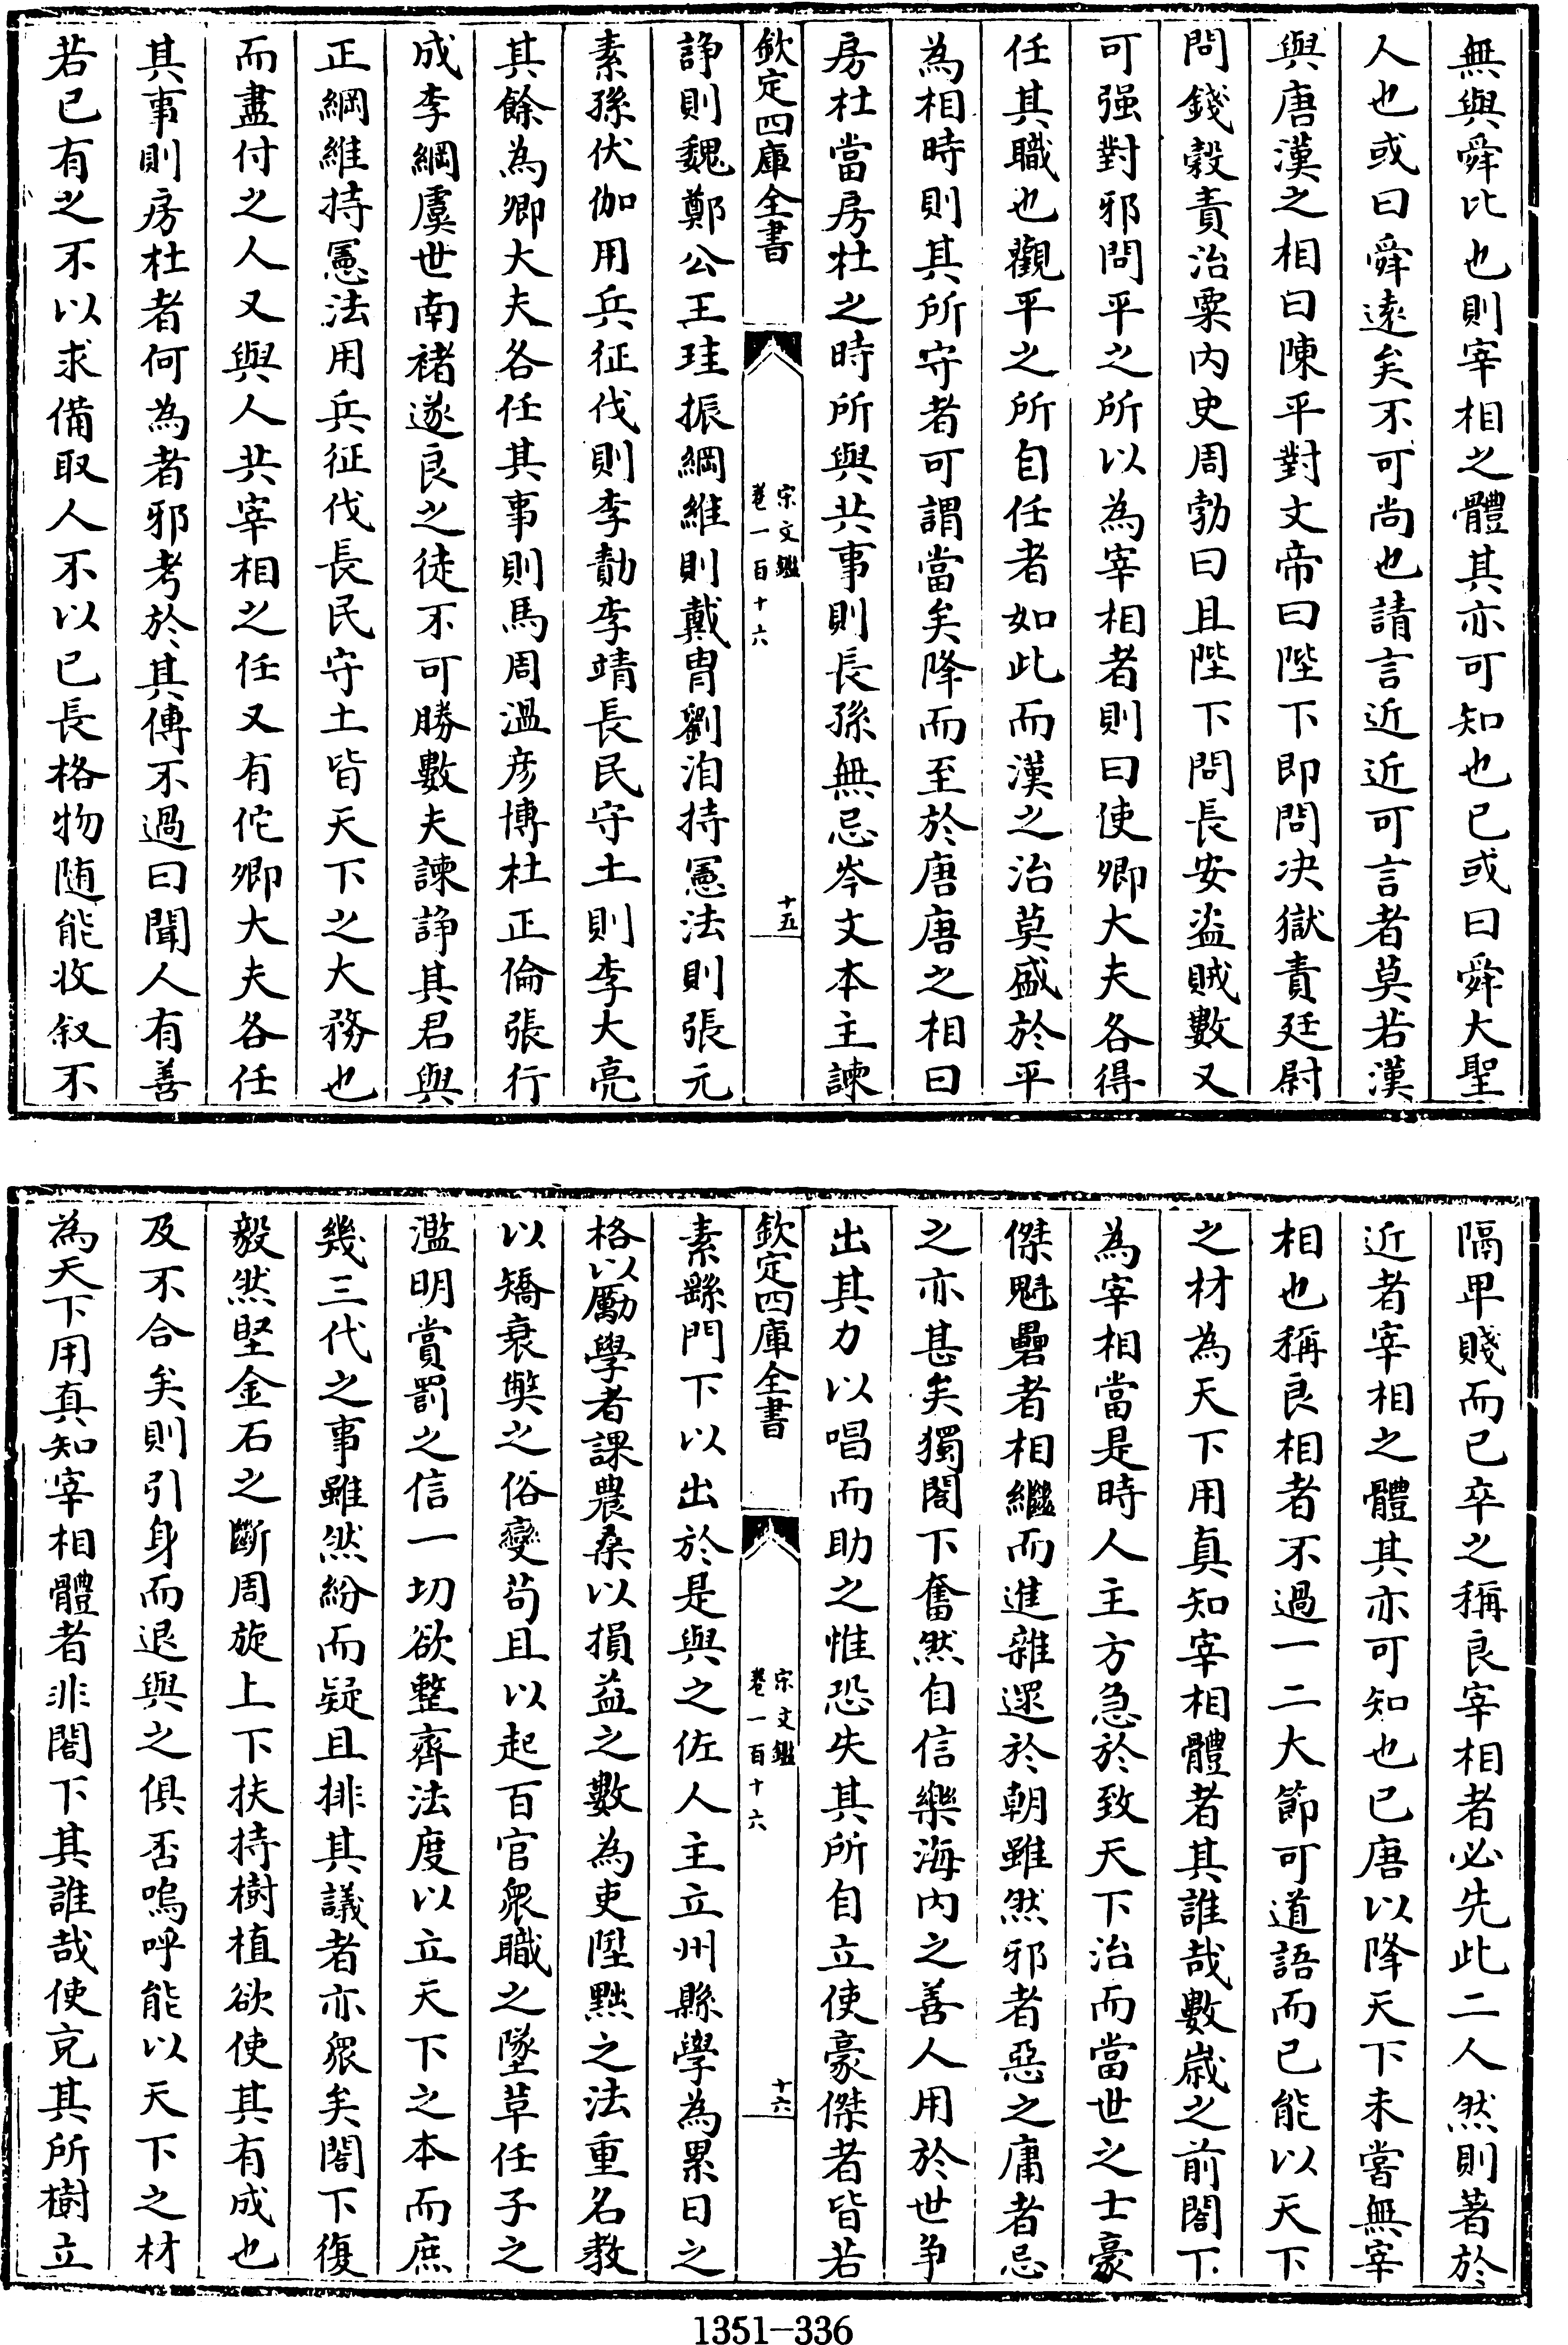 無與舜比也則宰相之體其亦可知也已或曰舜大聖
人也或曰舜遠矣不可尚也請言近近可言者莫若漢
與唐漢之相曰陳平對文帝曰陛下即問决獄責廷尉
問錢穀責治粟内史周勃曰且陛下問長安盜賊數又
可强對邪問平之所以為宰相者則曰使卿大夫各得
任其職也觀平之所自任者如此而漢之治莫盛於平
為相時則其所守者可謂當矣降而至於唐唐之相曰
房杜當房杜之時所與共事則長孫無忌岑文本主諫
欽定四庫全書
宋文鑑
卷一百十六
十五
諍則魏鄭公王珪振綱維則戴胄劉洎持憲法則張元
素孫伏伽用兵征伐則李勣李靖長民守土則李大亮
其餘為卿大夫各任其事則馬周温彦博杜正倫張行
成李綱虞世南褚遂良之徒不可勝數夫諫諍其君與
正綱維持憲法用兵征伐長民守土皆天下之大務也
而盡付之人又與人共宰相之任又有佗卿大夫各任
其事則房杜者何為者邪考於其傳不過曰聞人有善
若已有之不以求備取人不以已長格物随能收叙不
隔卑賤而已卒之稱良宰相者必先此二人然則著於
近者宰相之體其亦可知也已唐以降天下未嘗無宰
相也稱良相者不過一二大節可道語而已能以天下
之材為天下用真知宰相體者其誰哉數歲之前閤下
為宰相當是時人主方急於致天下治而當世之士豪
傑魁礨者相繼而進雜遝於朝雖然邪者惡之庸者忌
之亦甚矣獨閤下奮然自信樂海内之善人用於世爭
出其力以唱而助之惟恐失其所自立使豪傑者皆若
欽定四庫全書
宋文鑑
卷一百十六
十六
素繇門下以出於是與之佐人主立州縣學為累日之
格以勵學者課農桑以損益之數為吏陞黜之法重名教
以矯衰弊之俗變苟且以起百官衆職之墜革任子之
濫明賞罰之信一切欲整齊法度以立天下之本而庶
幾三代之事雖然紛而疑且排其議者亦衆矣閤下復
毅然堅金石之斷周旋上下扶持樹植欲使其有成也
及不合矣則引身而退與之俱否嗚呼能以天下之材
為天下用真知宰相體者非閤下其誰哉使克其所樹立
1351-336